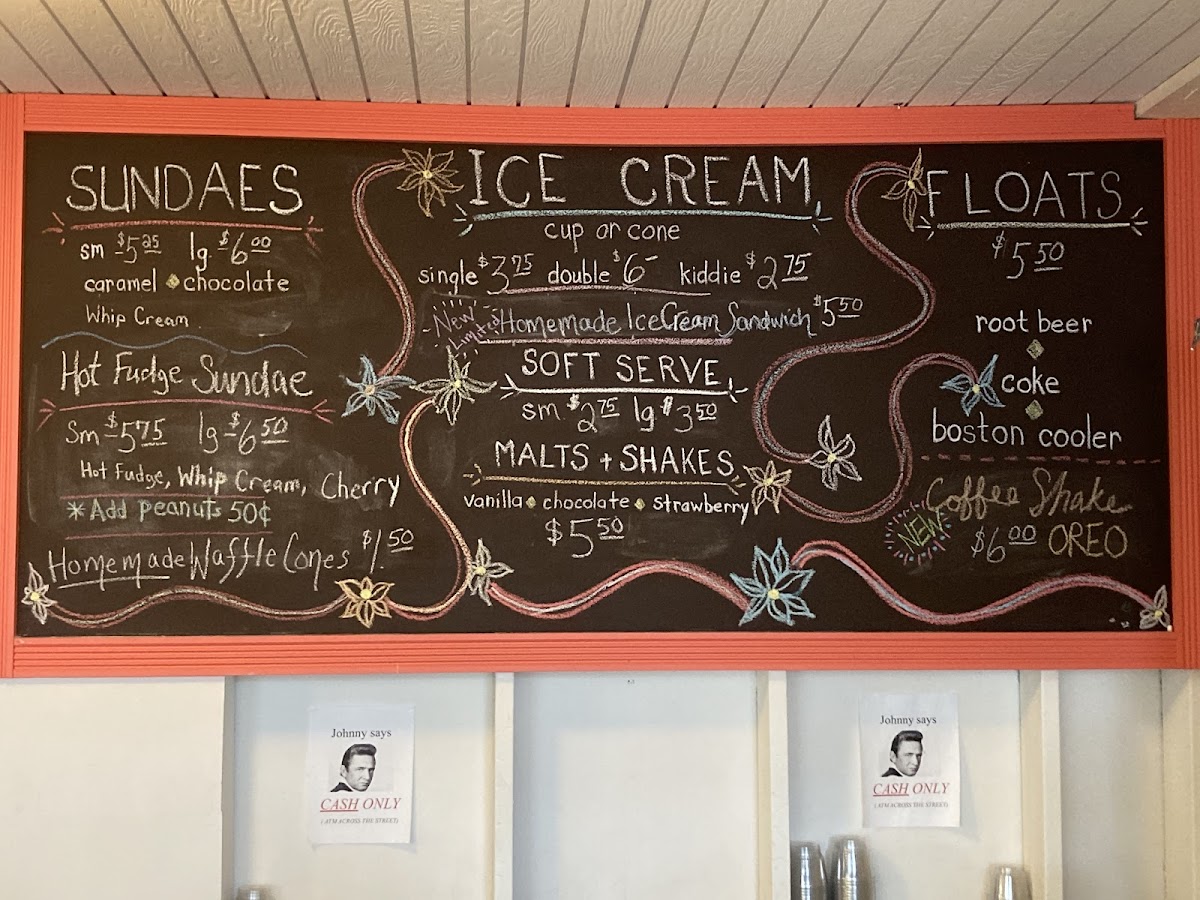 SUNDAES
sm $5.25 lg $6.00
caramel chocolate
Whip Cream
Hot Fudge Sundae
Sm $5.75 lg $6.50
Hot Fudge, Whip Cream, Cherry
*Add peanuts 50¢
Homemade Waffle Cones $1.50
ICE CREAM
cup or cone
single $3.75 double $6- kiddie $2.75
New Limited Homemade Ice Cream Sandwich $5.50
SOFT SERVE
sm $2.75 lg $3.50
MALTS + SHAKES
vanilla chocolate strawberry
$5.50
FLOATS
$5.50
root beer
coke
boston cooler
Coffee Shake
NEW $6.00 OREO
Johnny says
CASH ONLY
(ATM ACROSS THE STREET)
Johnny says
CASH ONLY
(ATM ACROSS THE STREET)